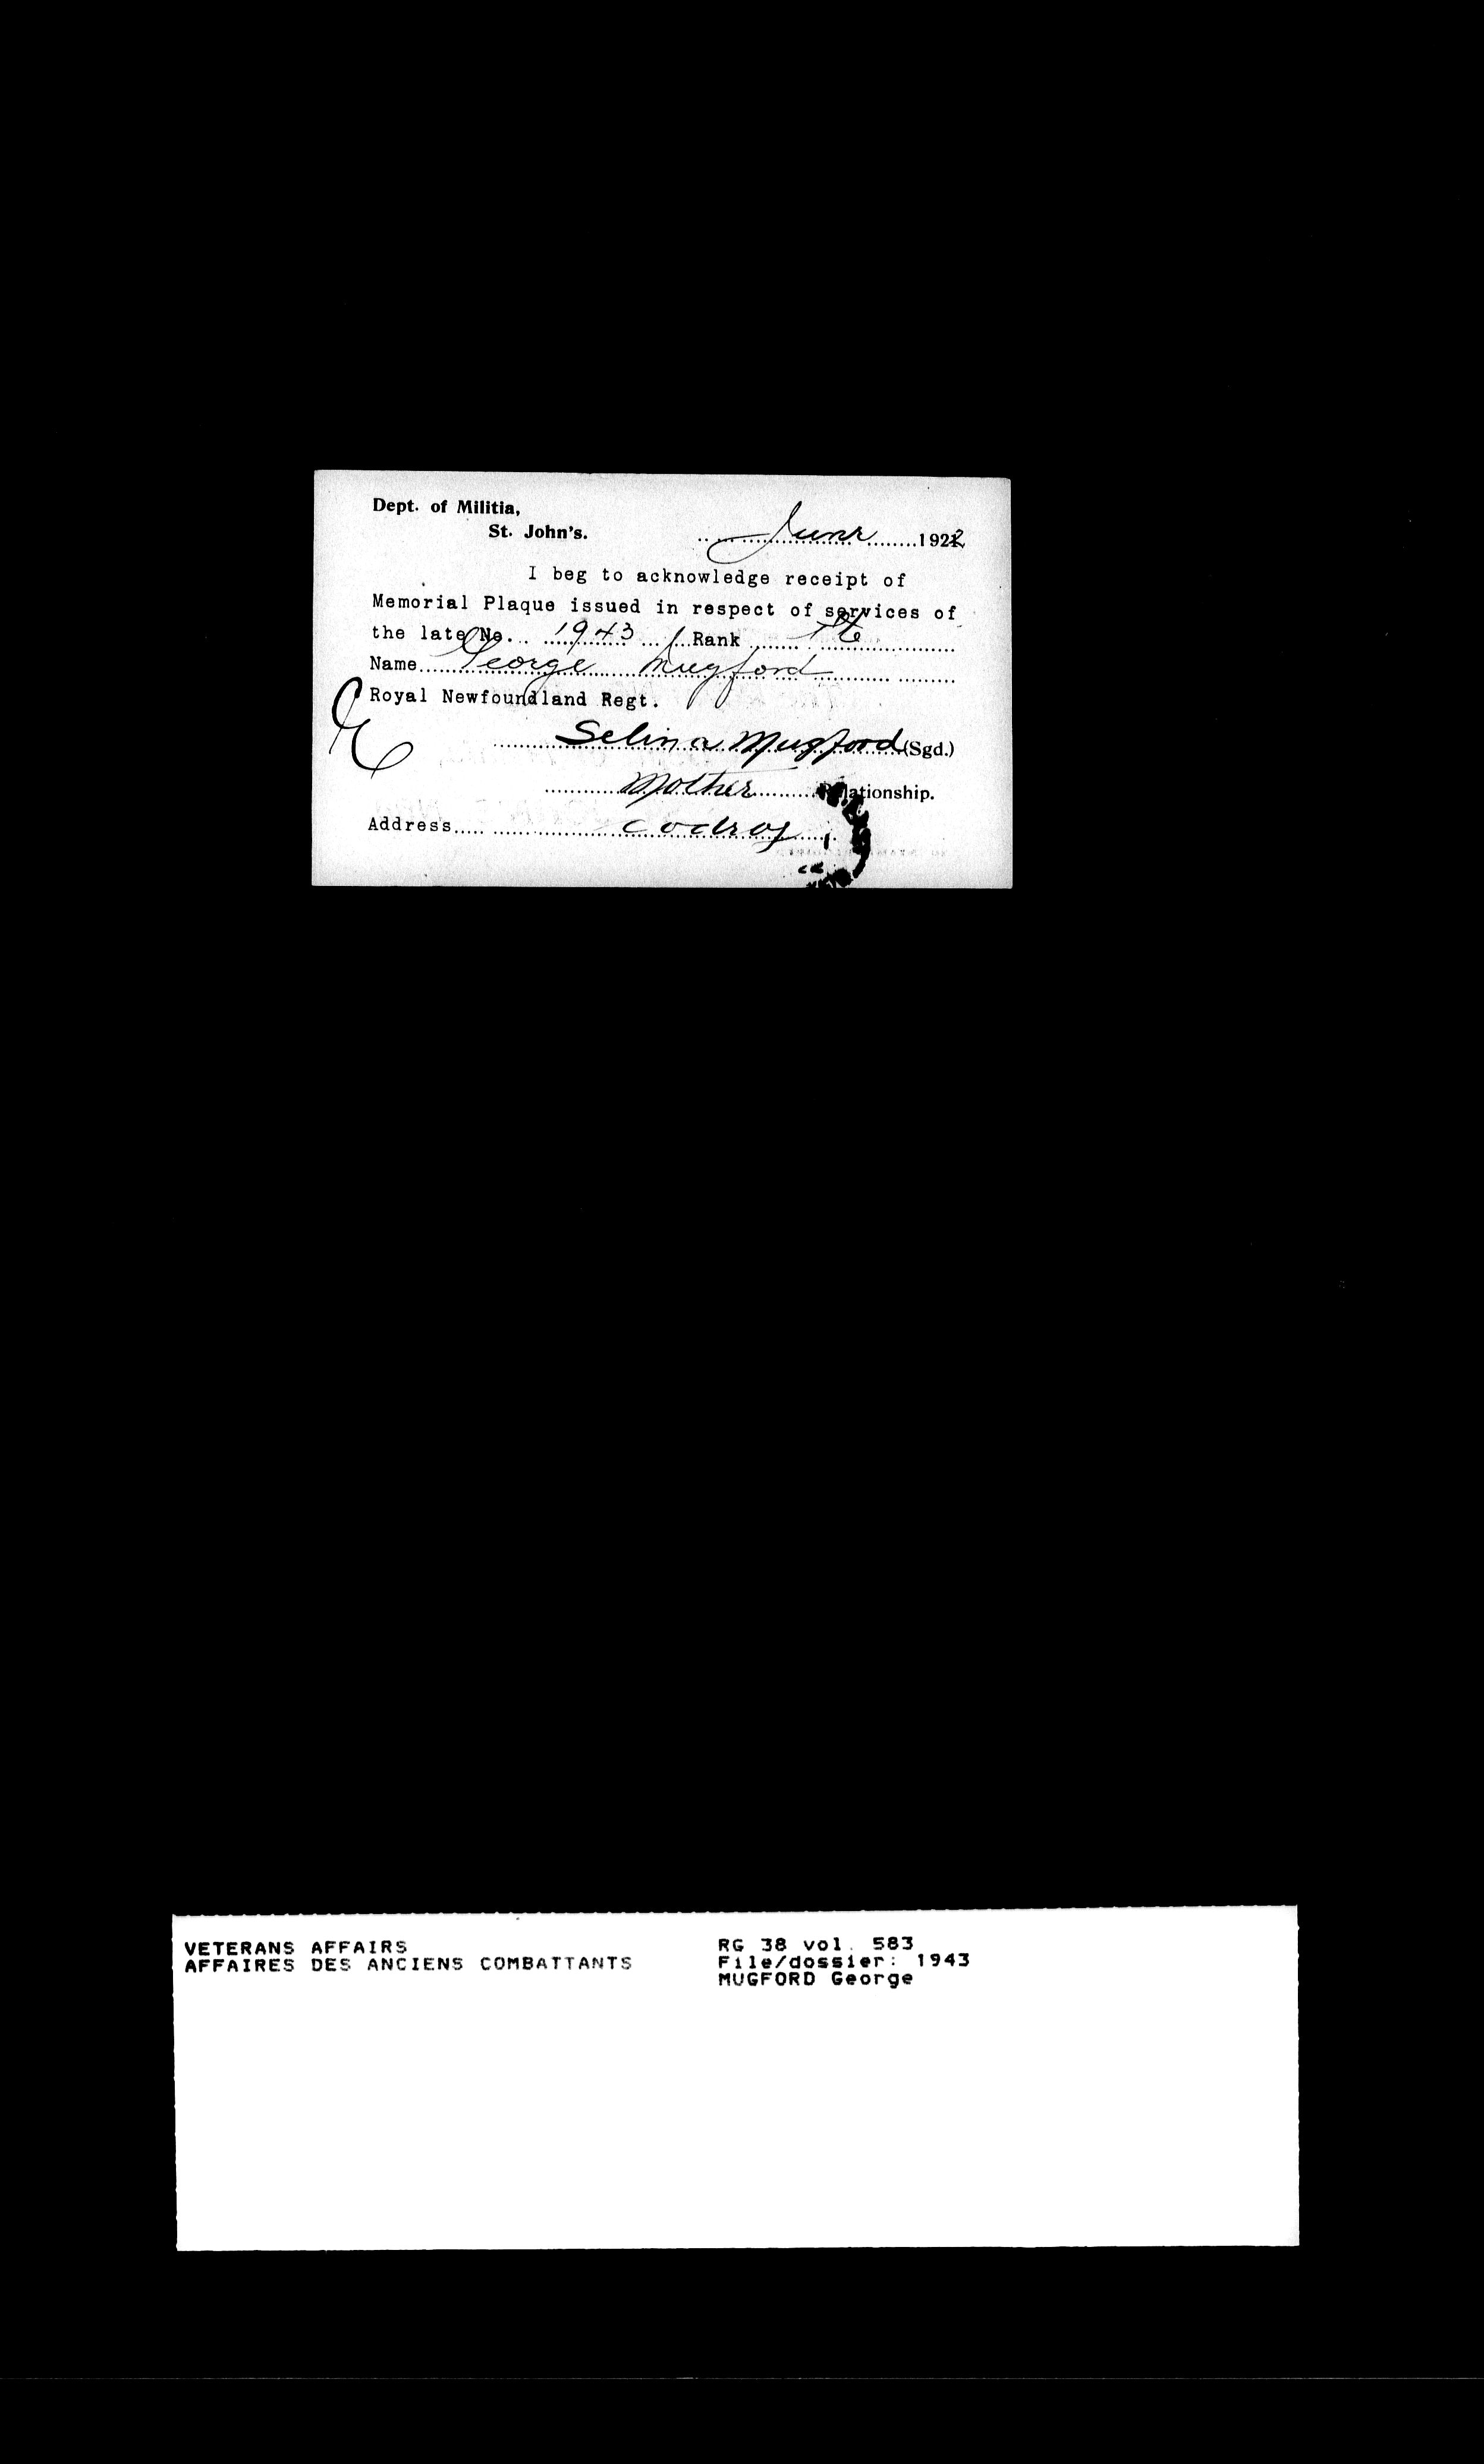 Dept. of Militia,
St. John's.
June 1922
I beg to acknowledge receipt of
Memorial Plaque issued in respect of services of
the late No. 1943 Rank Pte
Name George Mugford
Royal Newfoundland Regt.
Selina Mugford (Sgd.)
Mother Relationship.
Address Codroy
VETERANS AFFAIRS
AFFAIRES DES ANCIENS COMBATTANTS
RG 38 vol. 583
File/dossier: 1943
MUGFORD George